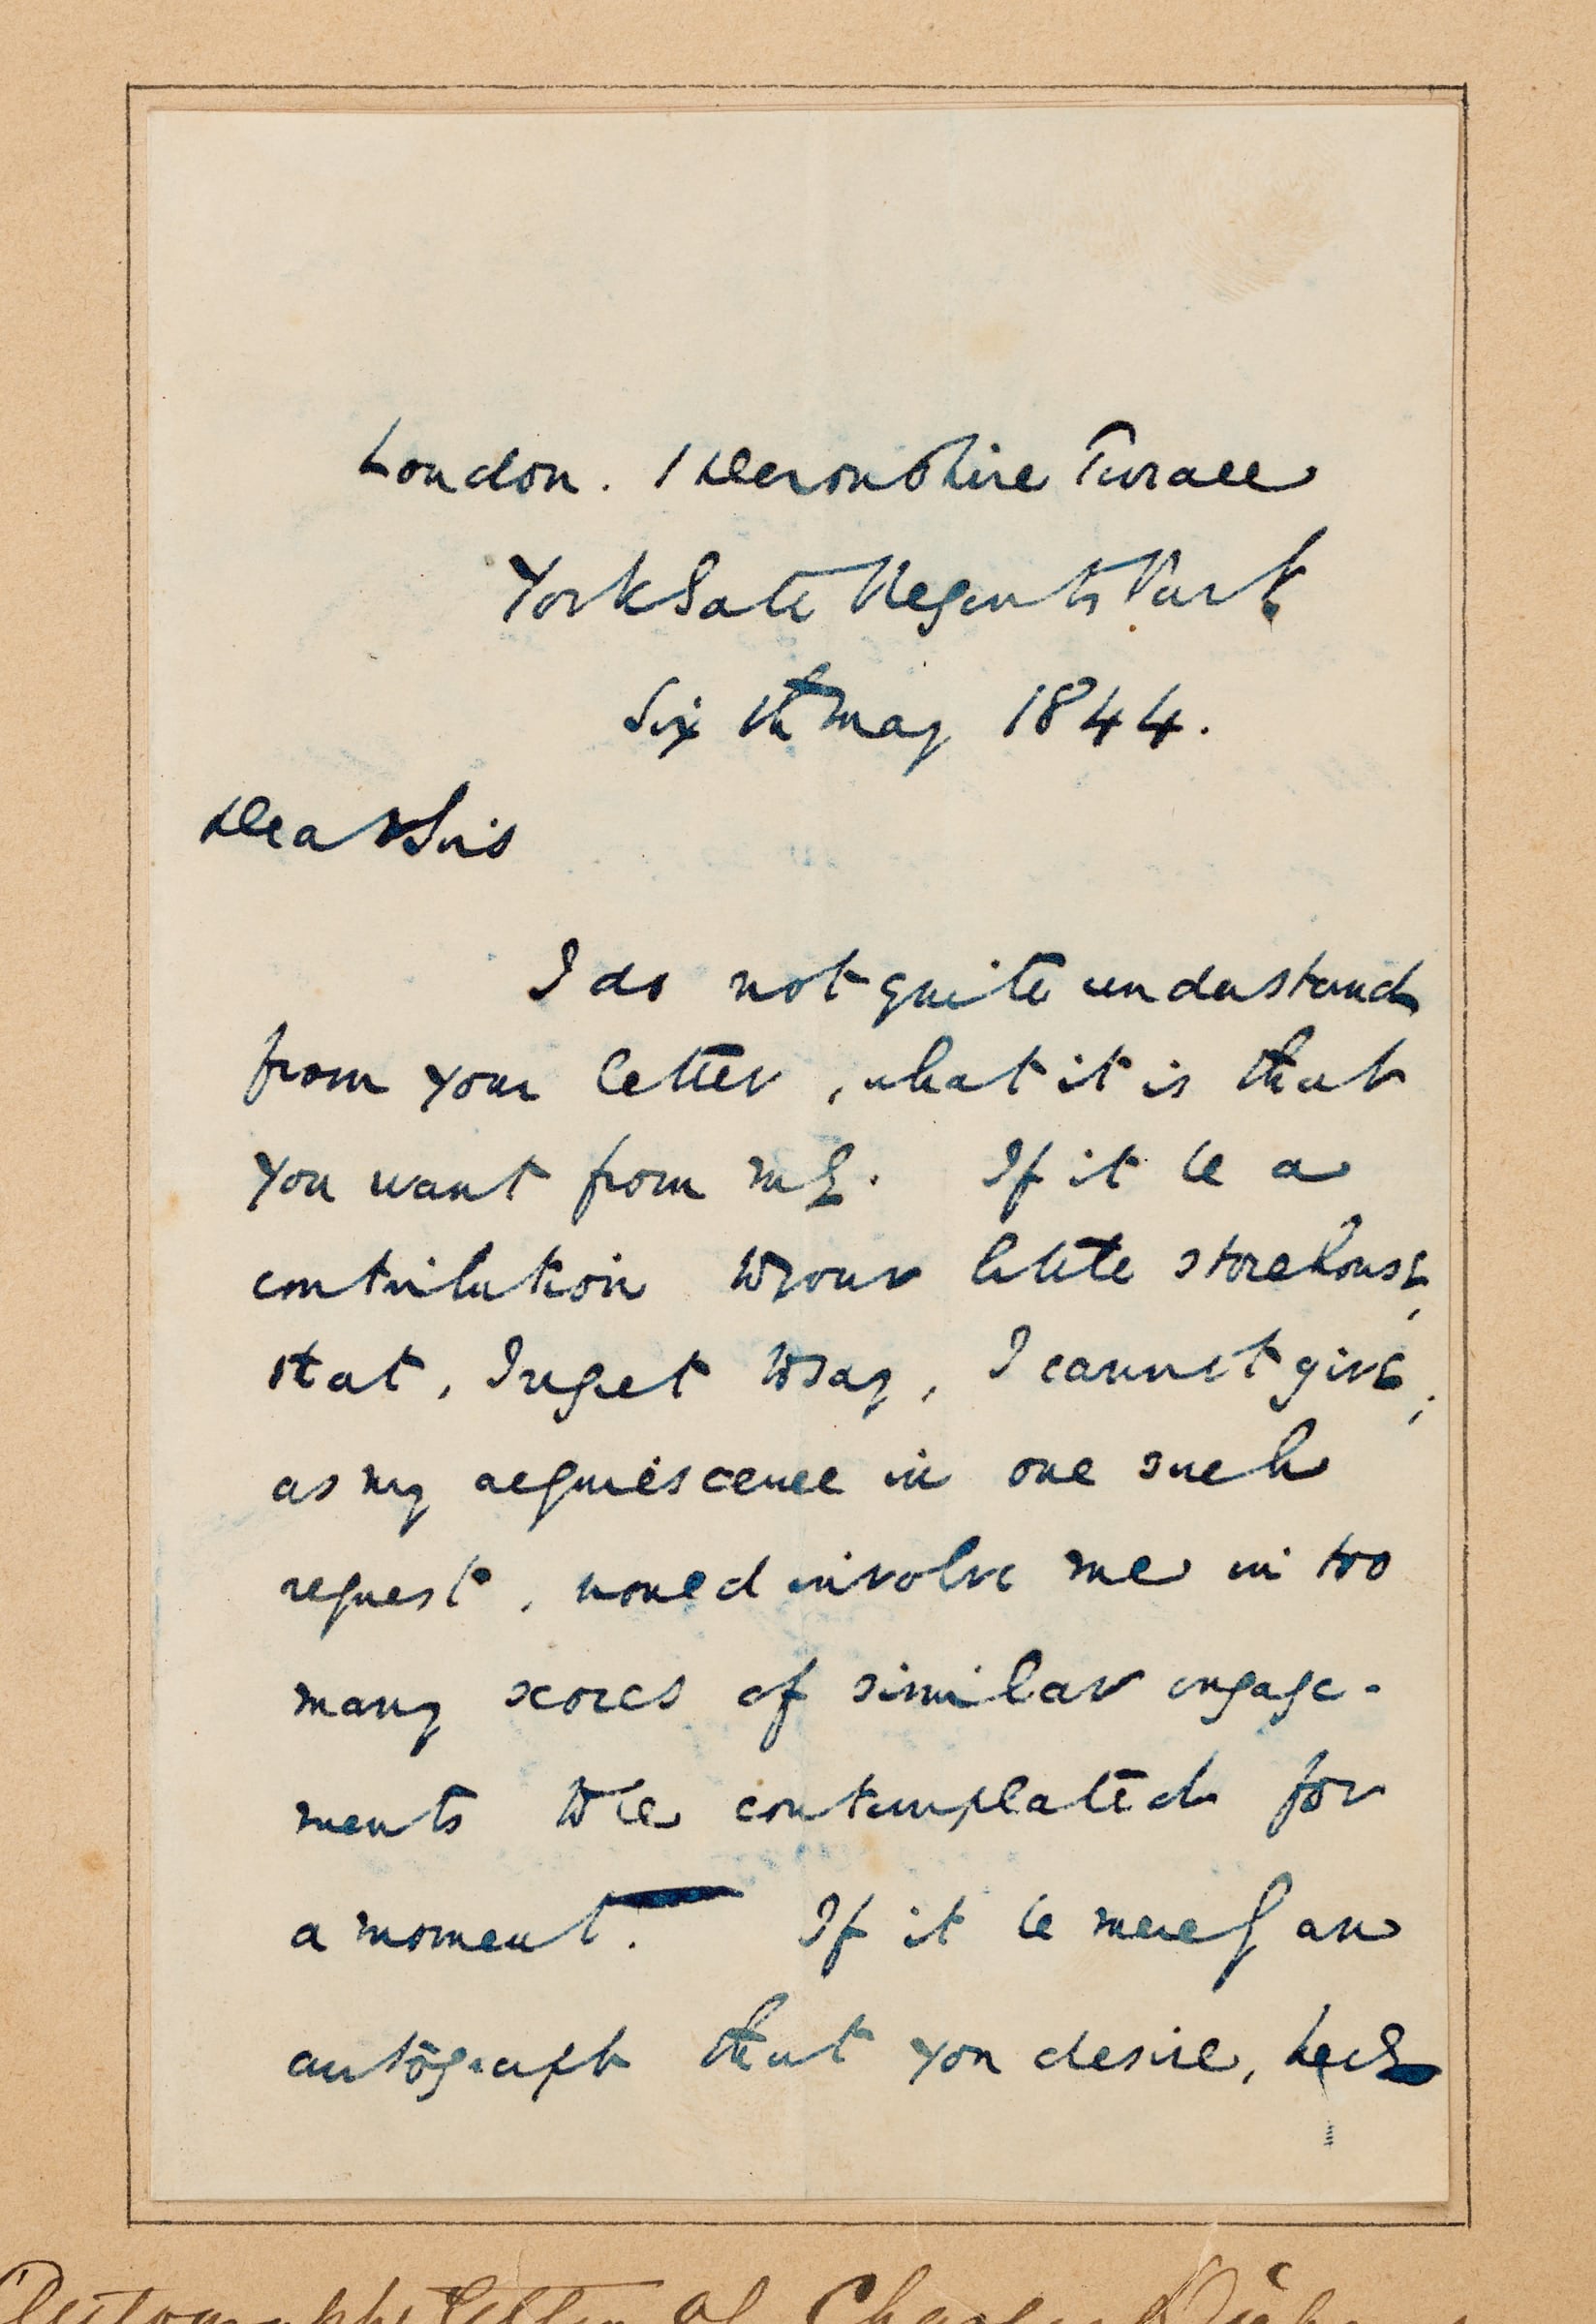 London. 1 Devonshire Terrace
York Gate Regents Park
Sixth May 1844.
Dear Sir
I do not quite understand
from your letter, what it is that
you want from me. If it be a
contribution to your little storehouse,
that, I regret to say, I cannot give;
as my acquiescence in one such
request, would involve me in too
many scores of similar engage-
ments to be contemplated for
a moment. If it be merely an
autograph that you desire, here
Autograph Letter of Charles